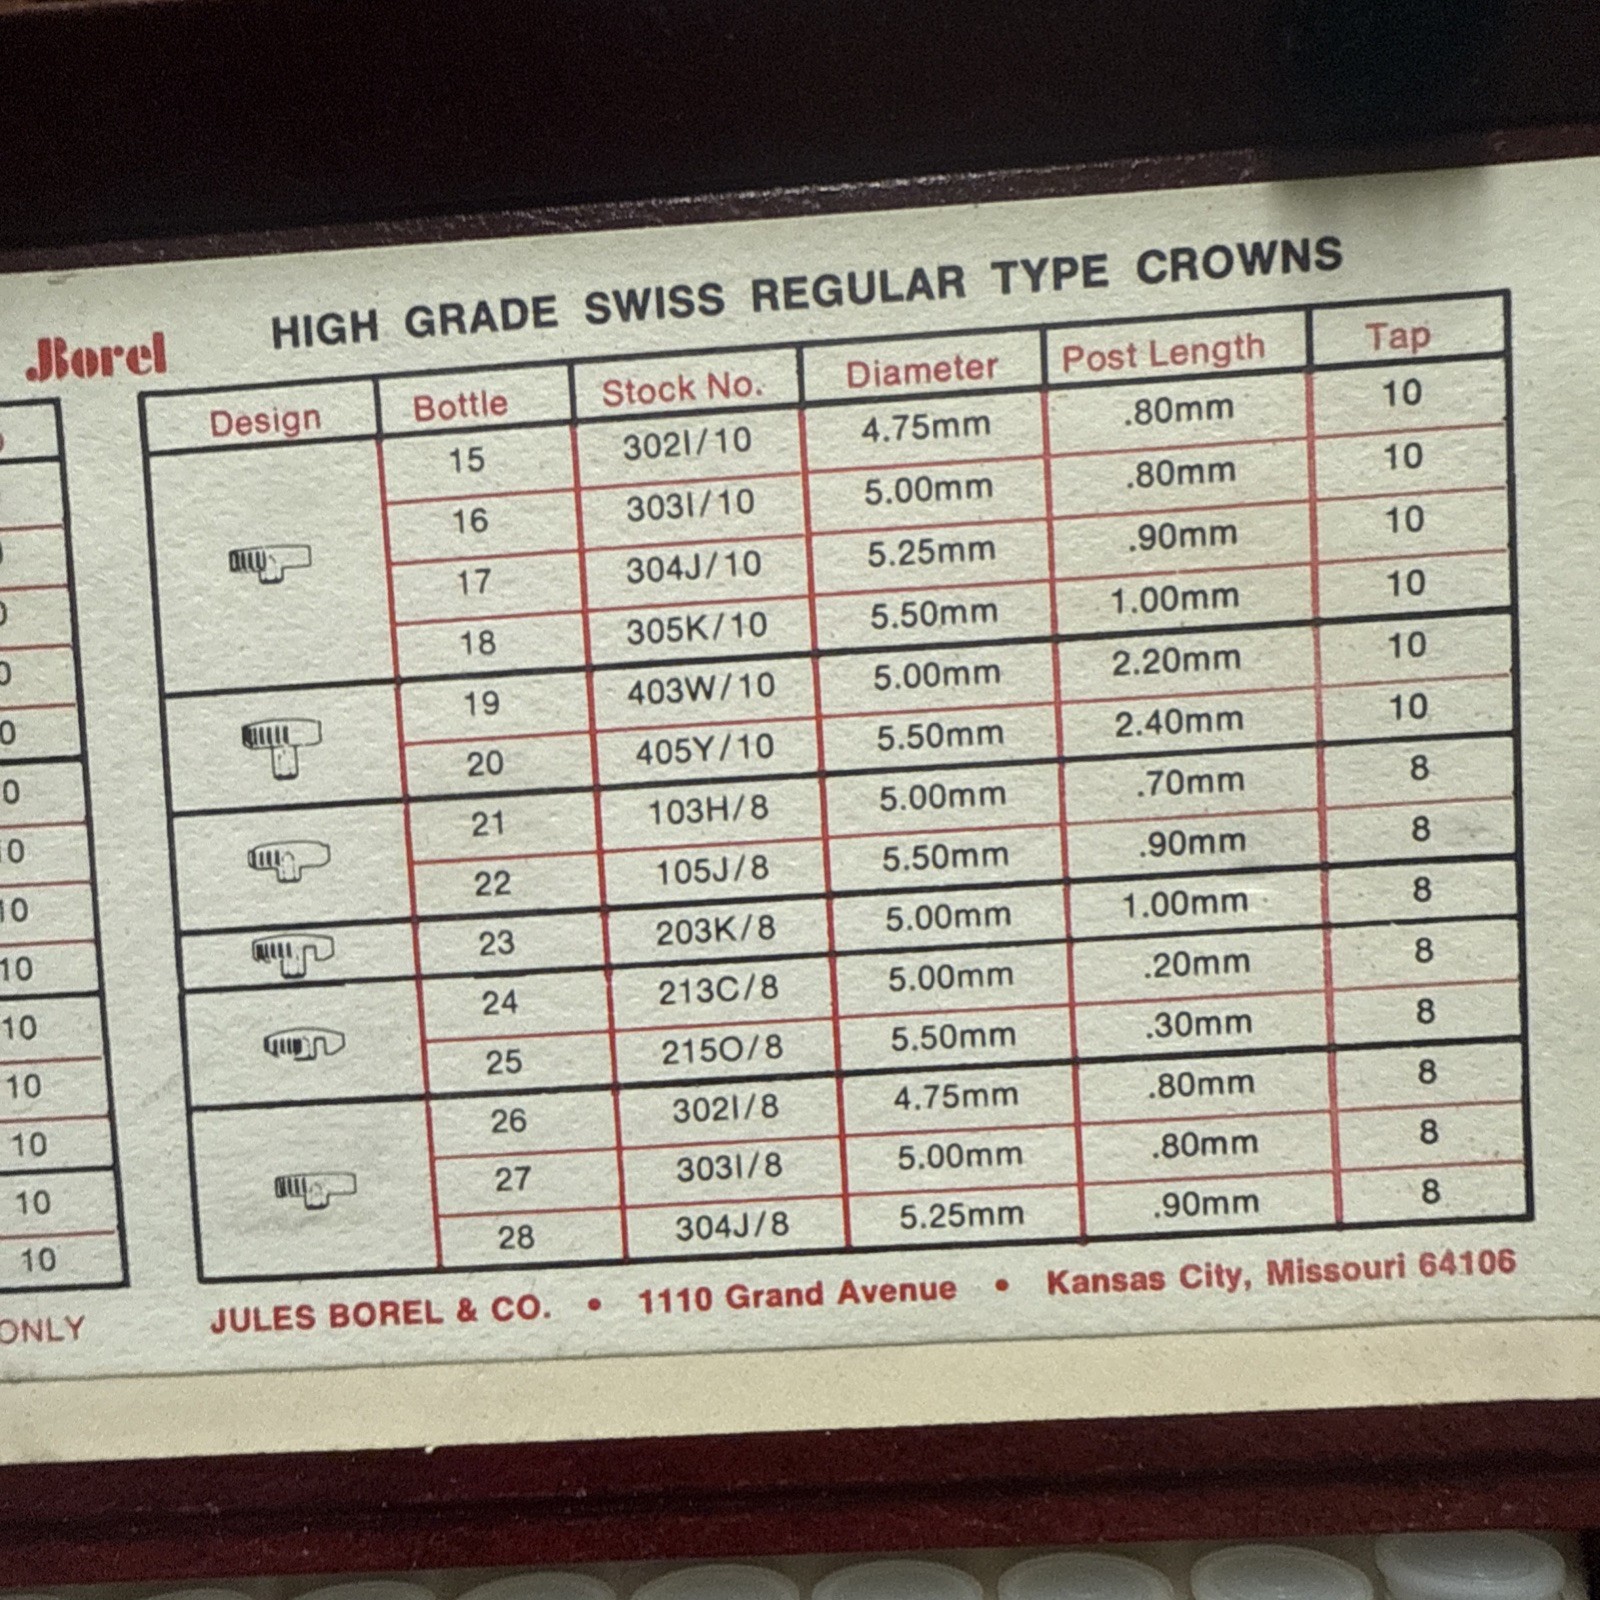 JBorel
HIGH GRADE SWISS REGULAR TYPE CROWNS
Design Bottle Stock No. Diameter Post Length Tap
15 302I/10 4.75mm .80mm 10
16 303I/10 5.00mm .80mm 10
17 304J/10 5.25mm .90mm 10
18 305K/10 5.50mm 1.00mm 10
19 403W/10 5.00mm 2.20mm 10
20 405Y/10 5.50mm 2.40mm 10
21 103H/8 5.00mm .70mm 8
22 105J/8 5.50mm .90mm 8
23 203K/8 5.00mm 1.00mm 8
24 213C/8 5.00mm .20mm 8
25 215O/8 5.50mm .30mm 8
26 302I/8 4.75mm .80mm 8
27 303I/8 5.00mm .80mm 8
28 304J/8 5.25mm .90mm 8
JULES BOREL & CO. • 1110 Grand Avenue • Kansas City, Missouri 64106
10
10
10
10
10
10
10
10
ONLY